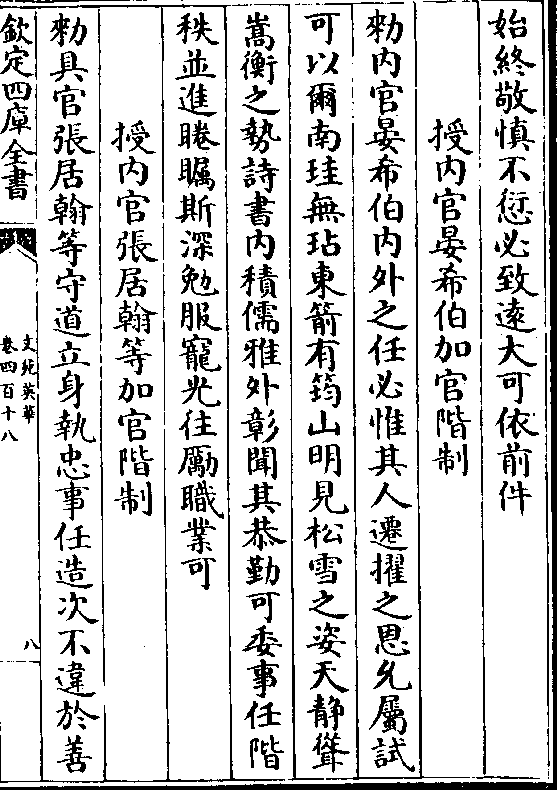 始終敬慎不愆必致遠大可依前件
授内官晏希伯加官階制
勑内官晏希伯内外之任必惟其人遷擢之恩允屬試
可以爾南珪無玷東箭有筠山明見松雪之姿天静聳
嵩衡之勢詩書内積儒雅外彰聞其恭勤可委事任階
秩並進睠矚斯深勉服寵光往勵職業可
授内官張居翰等加官階制
勑具官張居翰等守道立身執忠事任造次不違於善
欽定四庫全書
文苑英華
卷四百十八
八